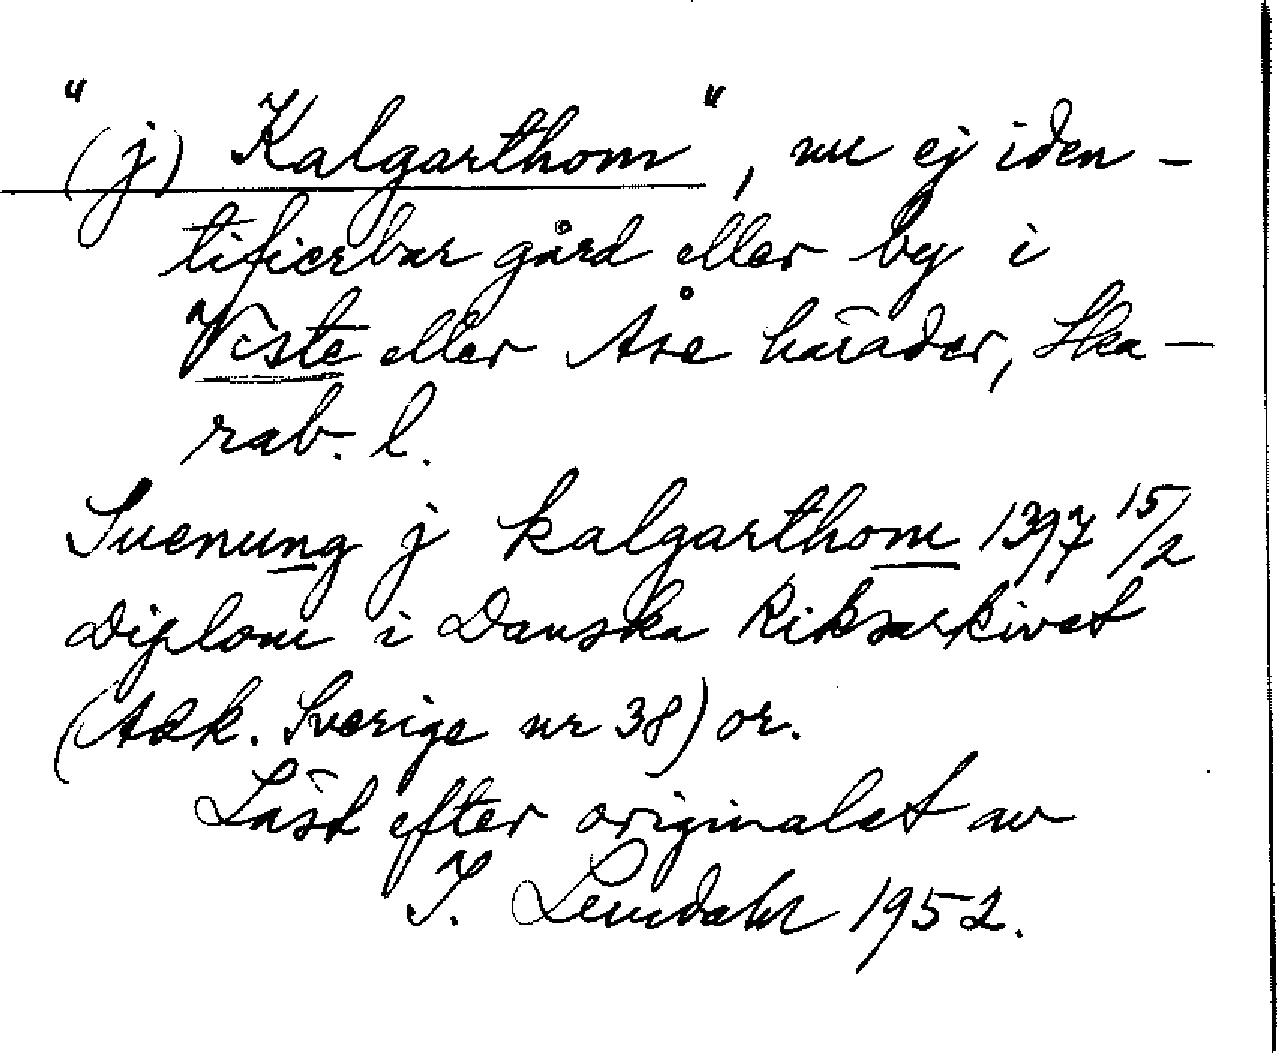 "(j) Kalgarthom", nu ej iden-
tifierbar gård eller by i
Viste eller Åse härader, Ska-
rab. l.
Suenung j kalgarthom 1397 15/2
Diplom i Danska Riksarkivet
Sverige nr 38) or.
Läst efter originalet av
I. Lundahl 1952.